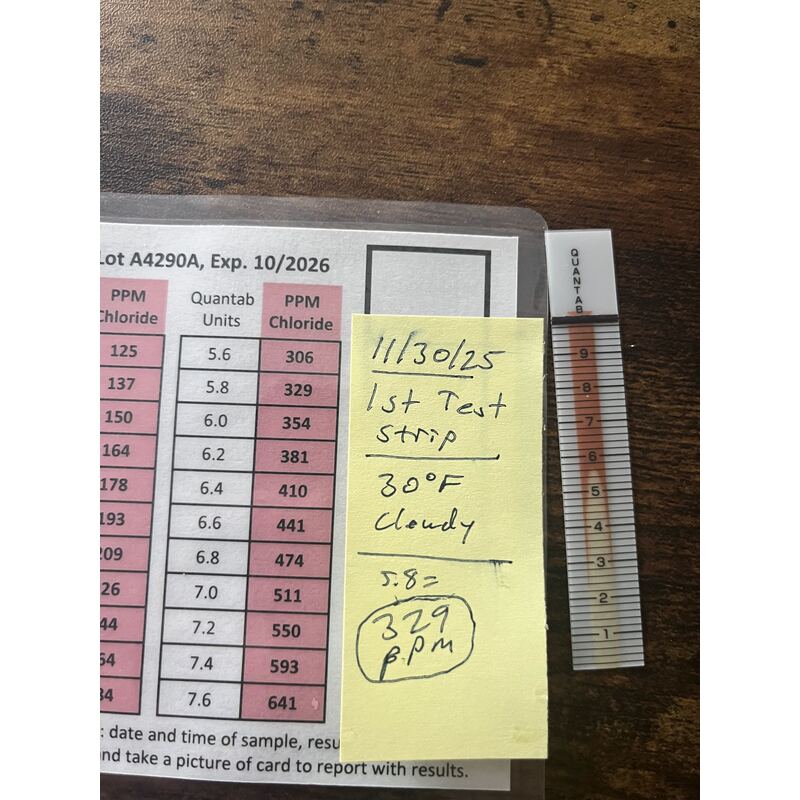 Lot A4290A, Exp. 10/2026
PPM Chloride
Quantab Units
PPM Chloride
125 5.6 306
137 5.8 329
150 6.0 354
164 6.2 381
178 6.4 410
193 6.6 441
209 6.8 474
26 7.0 511
44 7.2 550
64 7.4 593
34 7.6 641
: date and time of sample, resu
nd take a picture of card to report with results.
11/30/25
1st Test
Strip
30°F
Cloudy
5.8=
329
ppm
QUANTAB
9
8
7
6
5
4
3
2
1